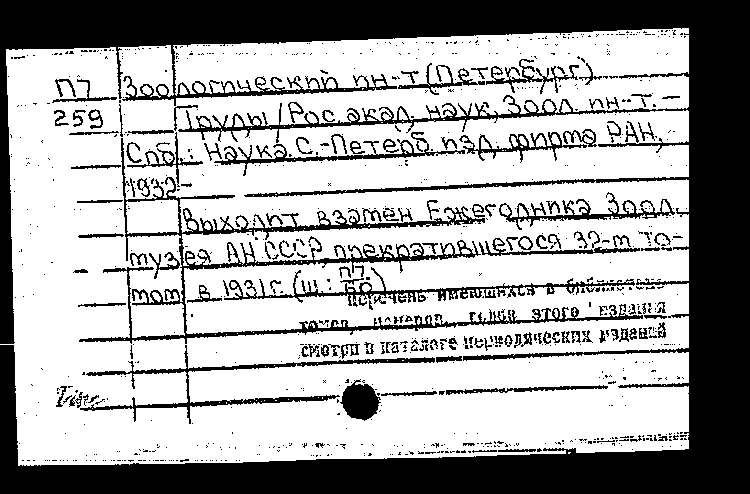 П7 Зоологический ин-т (Петербург)
259 Труды / Рос. акад. наук, Зоол. ин-т. –
Спб.: Наука. С.-Петерб. изд. фирма РАН,
1932 –
Выходит взамен Ежегодника Зоол.
музея АН СССР, прекратившегося 32-м то-
мом в 1931 г. (ш.: П7/60)
перечень имеющихся в библиотеке
томов, номеров, годов этого издания
смотри в каталоге периодических изданий